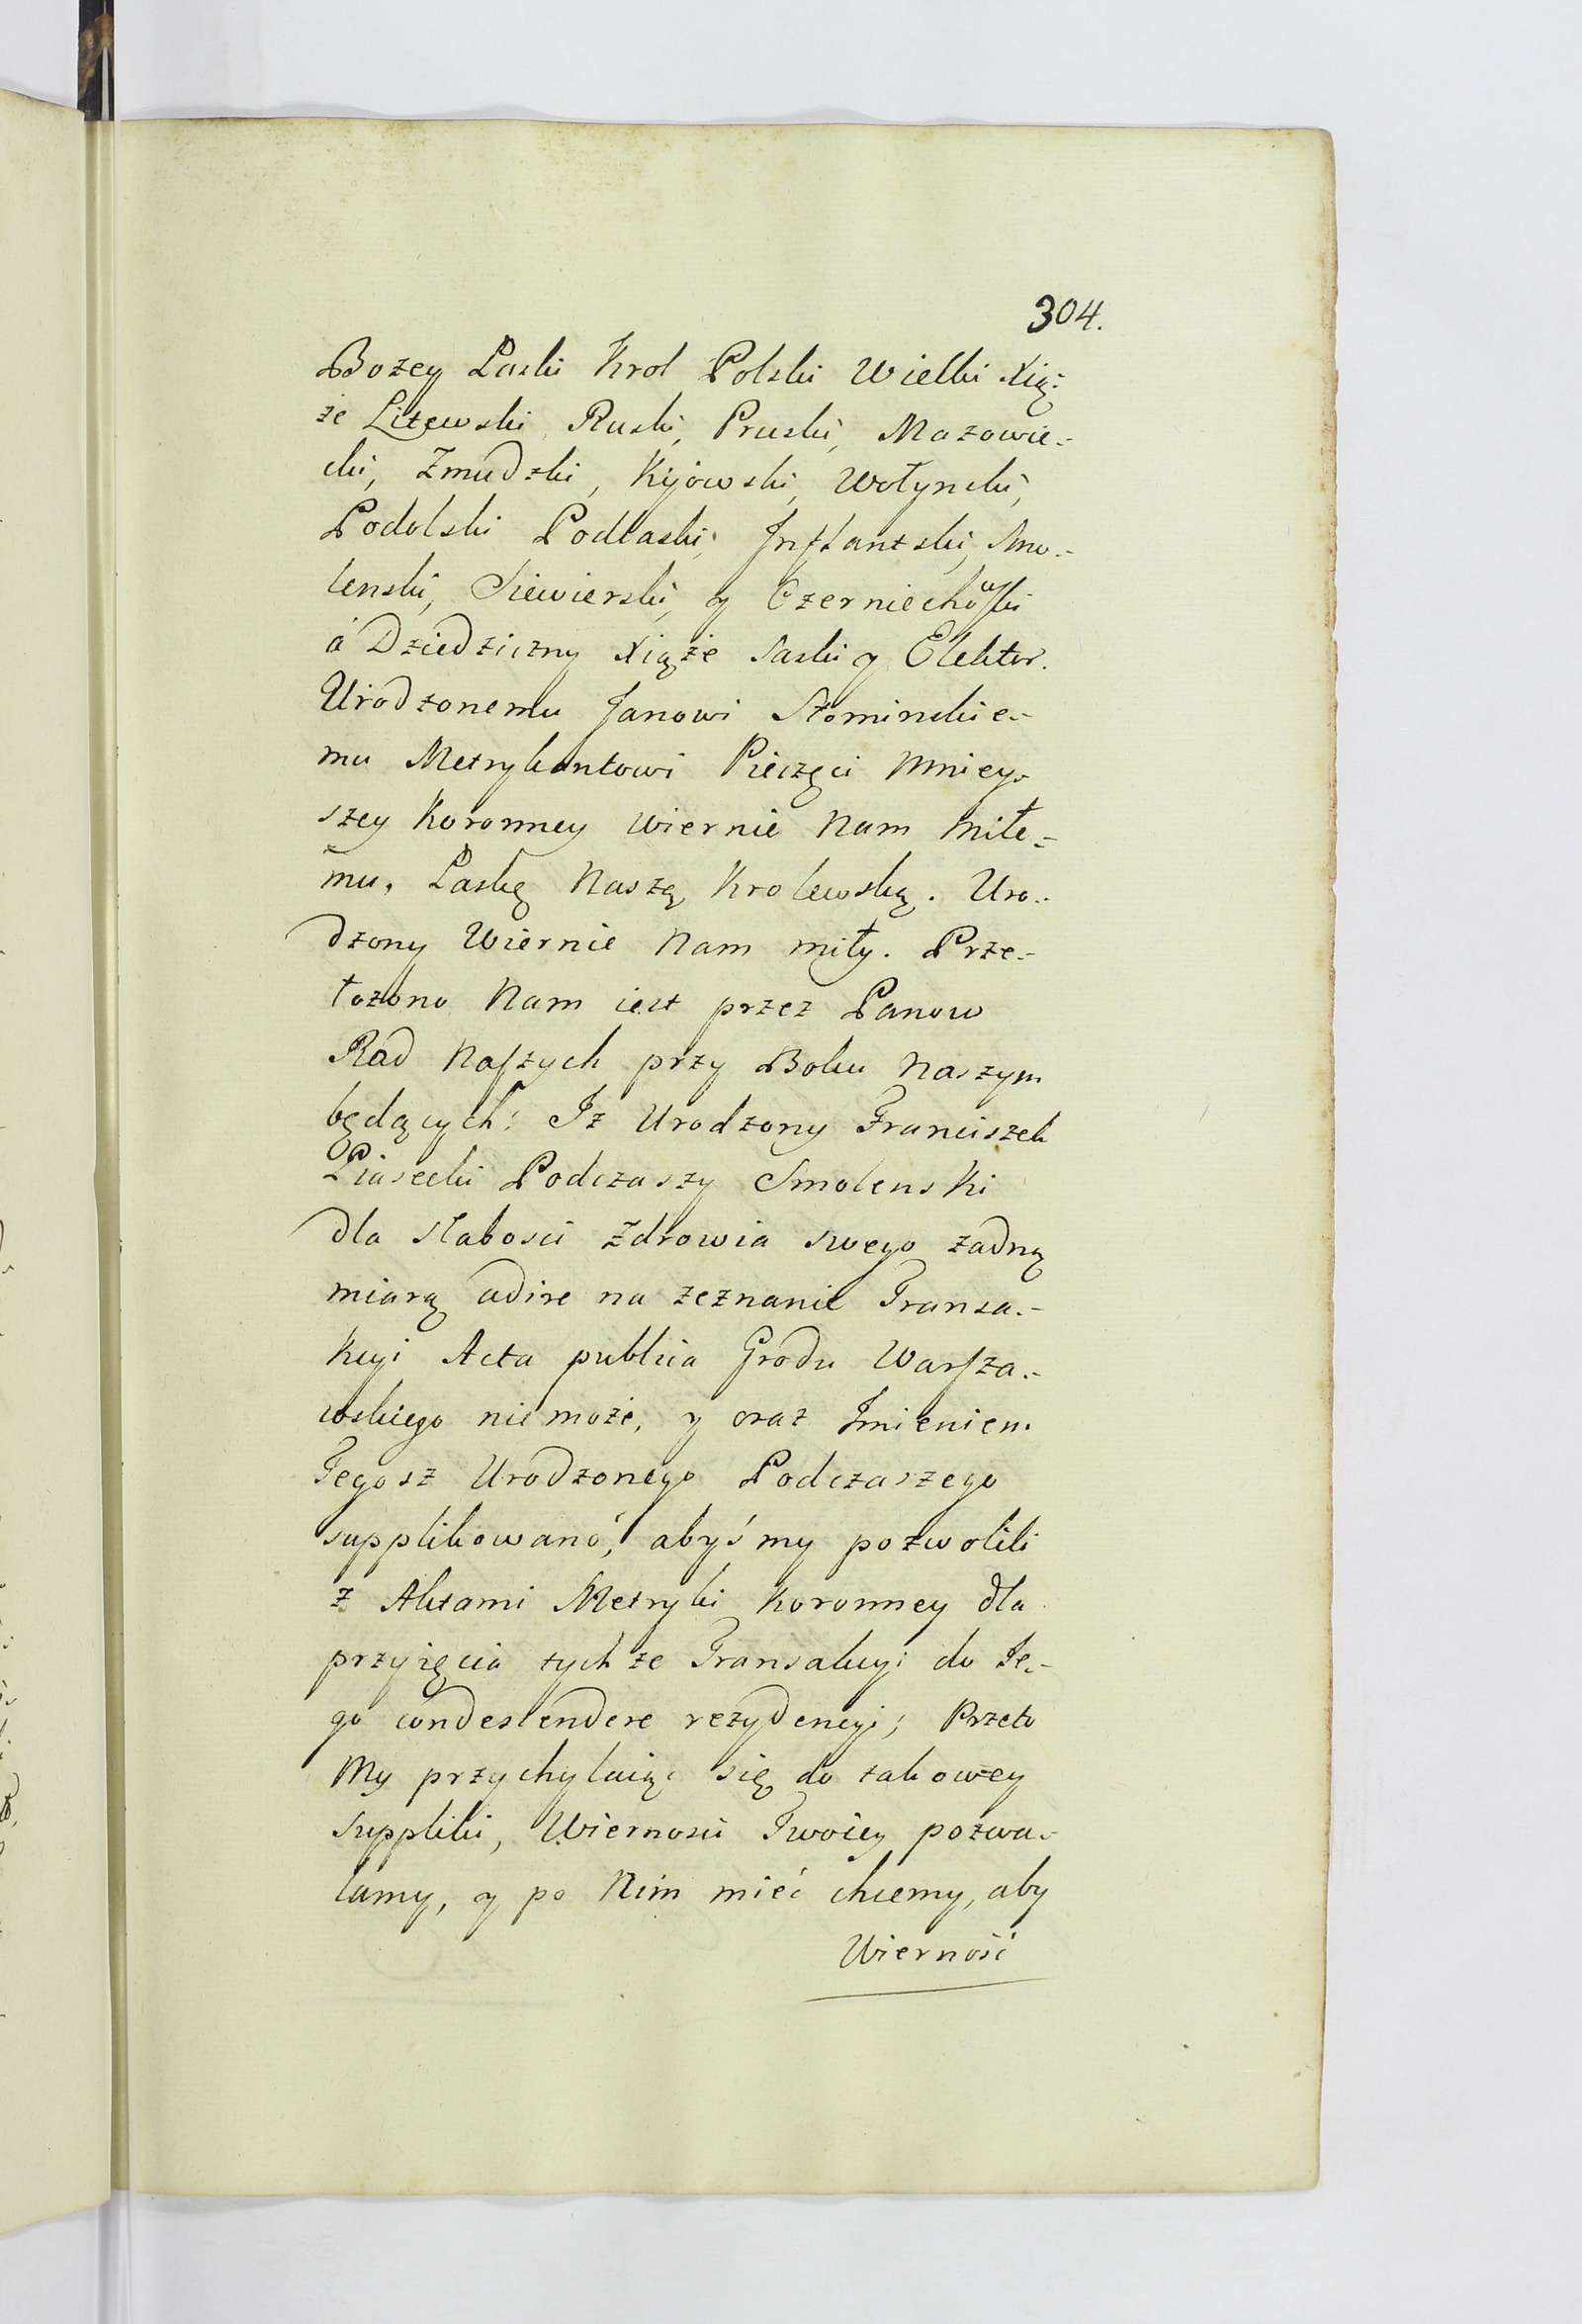 304.
Bozey Laski Krol Polski Wielki Xią-
że Litewski, Ruski, Pruski, Mazowie-
cki, Zmudzki, Kijowski, Wołynski,
Podolski Podlaski, Inflantski, Smo-
lenski, Siewierski, y Czerniechowski
á Dziedziczny Xiąże Saski y Elektor.
Urodzonemu Janowi Słominskie-
mu Metrykantowi Pieczęci Mniey-
szey Koronney wiernie Nam miłe-
mu, Laskę Naszą Krolewską. Uro-
dzony Wiernie Nam miły. Prze-
łozono Nam iest przez Panow
Rad Naszych przy Boku Naszym
będących: Iz Urodzony Franciszek
Piasecki Podczaszy Smolenski
dla słabosci Zdrowia swego zadną
miarą adire na zeznanie Transa-
kcyi Acta publica Grodu Warsza-
wskiego niemoże, y oraz Imieniem
Tegosz Urodzonego Podczaszego
supplikowanó, abyśmy pozwolili
z Aktami Metryki Koronney dla
przyięcia tychze Transakcyi do Je-
go condescendere rezydencyi; Przeto
My przychylaiąc się do takowey
suppliki, Wiernosci Twoiey pozwa-
lamy, y po Nim mieć chcemy, aby
Wierność